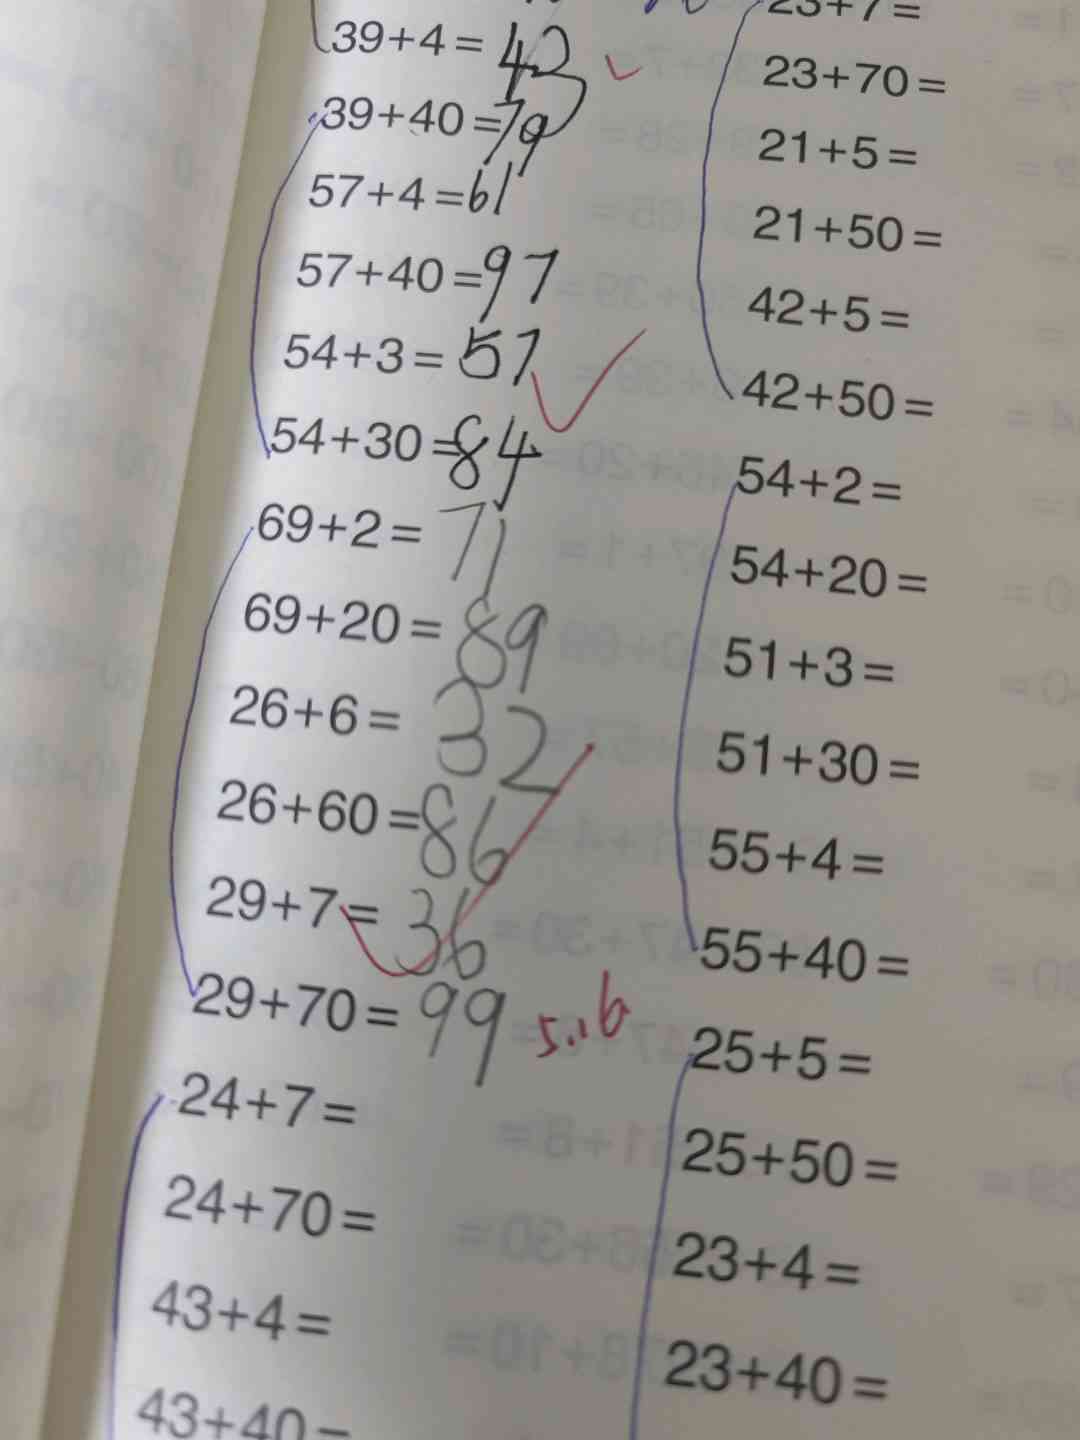 39+4=43
39+40=79
57+4=61
57+40=97
54+3=57
54+30=84
69+2=71
69+20=89
26+6=32
26+60=86
29+7=36
29+70=99 5..6
24+7=
24+70=
43+4=
43+40=
23+7=
23+70=
21+5=
21+50=
42+5=
42+50=
54+2=
54+20=
51+3=
51+30=
55+4=
55+40=
25+5=
25+50=
23+4=
23+40=